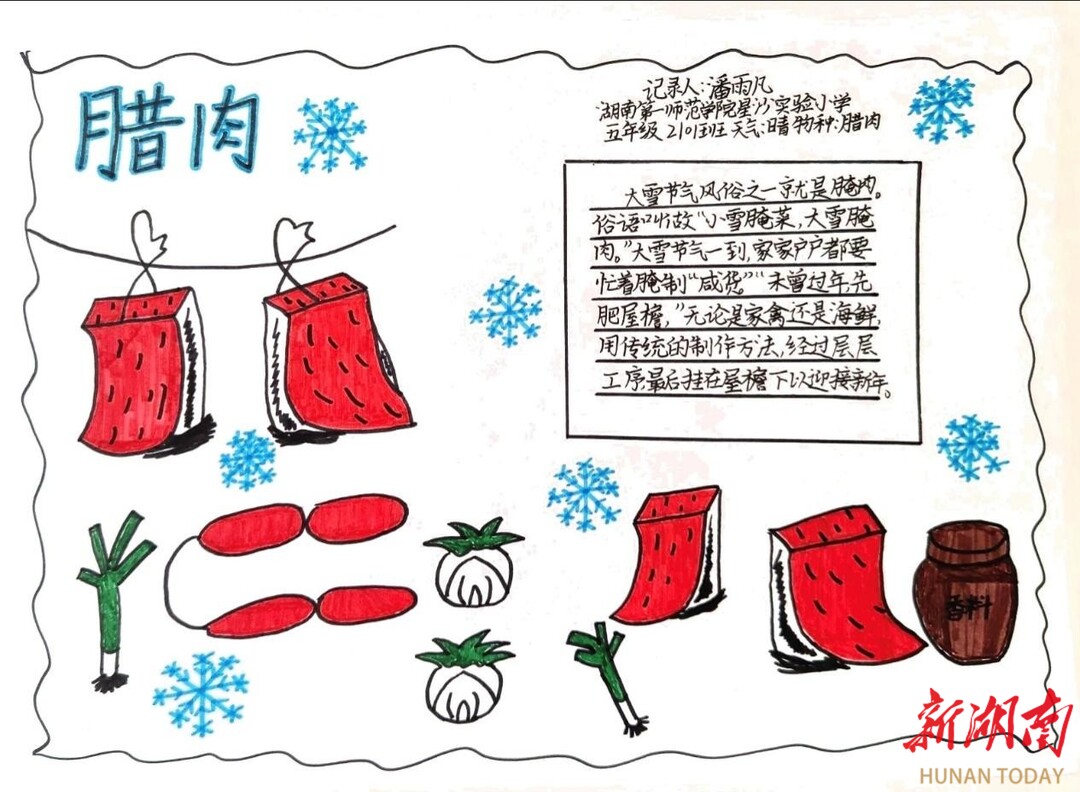 腊肉
记录人:潘雨凡
湖南第一师范学院星沙实验小学
五年级2101班 天气:晴 物种:腊肉
大雪节气风俗之一就是腌肉。
俗语叫做“小雪腌菜,大雪腌
肉。”大雪节气一到,家家户户都要
忙着腌制“咸货”“未曾过年,先
肥屋檐,”无论是家禽还是海鲜,
用传统的制作方法,经过层层
工序,最后挂在屋檐下以迎接新年。
香料
新湖南
HUNAN TODAY